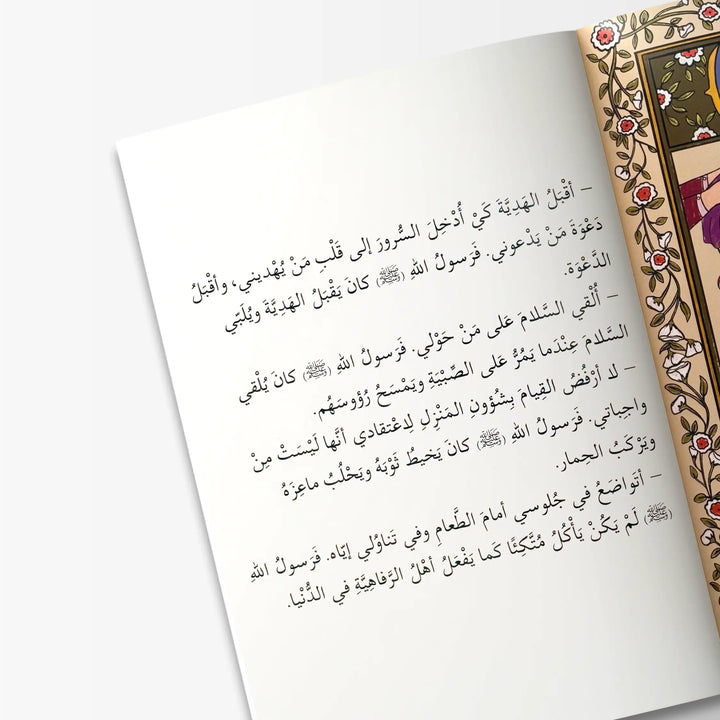 – أقْبَلُ الهَدِيَّةَ كَيْ أُدْخِلَ السُّرورَ إلى قَلْبِ مَنْ يُهْديني، وأقْبَلُ
دَعْوَةَ مَنْ يَدْعوني. فَرَسولُ اللهِ (ﷺ) كانَ يَقْبَلُ الهَدِيَّةَ ويُلَبّي
الدَّعْوَة.
– أُلْقي السَّلامَ عَلى مَنْ حَوْلي. فَرَسولُ اللهِ (ﷺ) كانَ يُلْقي
السَّلامَ عِنْدَما يَمُرُّ عَلى الصِّبْيَةِ ويَمْسَحُ رُؤوسَهُم.
– لا أرْفُضُ القِيامَ بِشُؤونِ المَنْزِلِ لِاعْتِقادي أنَّها لَيْسَتْ مِنْ
واجِباتي. فَرَسولُ اللهِ (ﷺ) كانَ يَخيطُ ثَوْبَهُ ويَحْلُبُ ماعِزَهُ
ويَرْكَبُ الحِمار.
– أتَواضَعُ في جُلوسي أمامَ الطَّعامِ وفي تَناوُلي إيّاه. فَرَسولُ اللهِ
(ﷺ) لَمْ يَكُنْ يَأْكُلُ مُتَّكِئًا كَما يَفْعَلُ أهْلُ الرَّفاهِيَّةِ في الدُّنْيا.